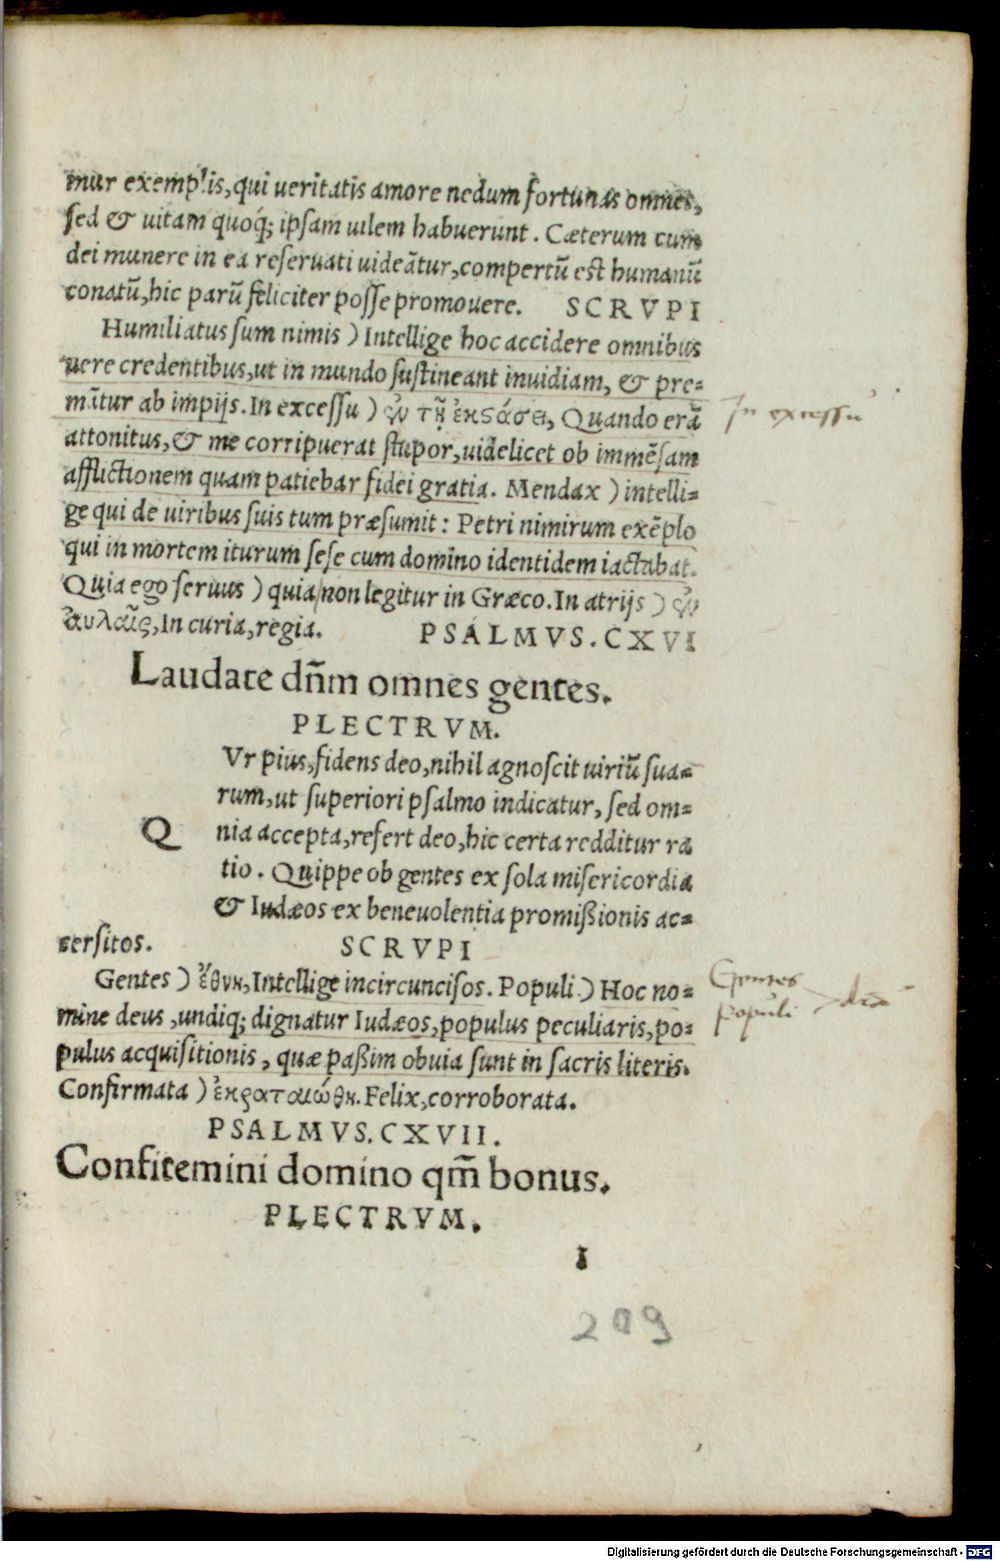 mur exemplis, qui ueritatis amore nedum fortunas omnes,
sed & uitam quoq́; ipsam uilem habuerunt. Cæterum cum
dei munere in ea reseruati uideãtur, compertũ est humanũ
conatũ, hic parũ feliciter posse promouere. SCRVPI
Humiliatus sum nimis ) Intellige hoc accidere omnibus
uere credentibus, ut in mundo sustineant inuidiam, & pre=
mãtur ab impijs. In excessu ) ἐν τῇ ἐκστάσει, Quando erã
attonitus, & me corripuerat stupor, uidelicet ob immẽsam
afflictionem quam patiebar fidei gratia. Mendax ) intelli=
ge qui de uiribus suis tum præsumit: Petri nimirum exẽplo
qui in mortem iturum sese cum domino identidem iactabat.
Quia ego seruus ) quia non legitur in Græco. In atrijs ) ἐν
ἀυλαῖς, In curia, regia. PSALMVS. CXVI
Laudate dñm omnes gentes.
PLECTRVM.
Q Vr pius, fidens deo, nihil agnoscit uiriũ sua=
rum, ut superiori psalmo indicatur, sed om=
nia accepta, refert deo, hic certa redditur ra
tio. Quippe ob gentes ex sola misericordia
& Iudæos ex beneuolentia promißionis ac=
cersitos. SCRVPI
Gentes ) ἔθνη, Intellige incircuncisos. Populi ) Hoc no=
mine deus, undiq; dignatur Iudæos, populus peculiaris, po=
pulus acquisitionis, quæ paßim obuia sunt in sacris literis.
Confirmata ) ἐκραταιώθη. Felix, corroborata.
PSALMVS. CXVII.
Confitemini domino qm̃ bonus.
PLECTRVM.
I
209
In excessu
Gentes
populi
Digitalisierung gefördert durch die Deutsche Forschungsgemeinschaft - DFG